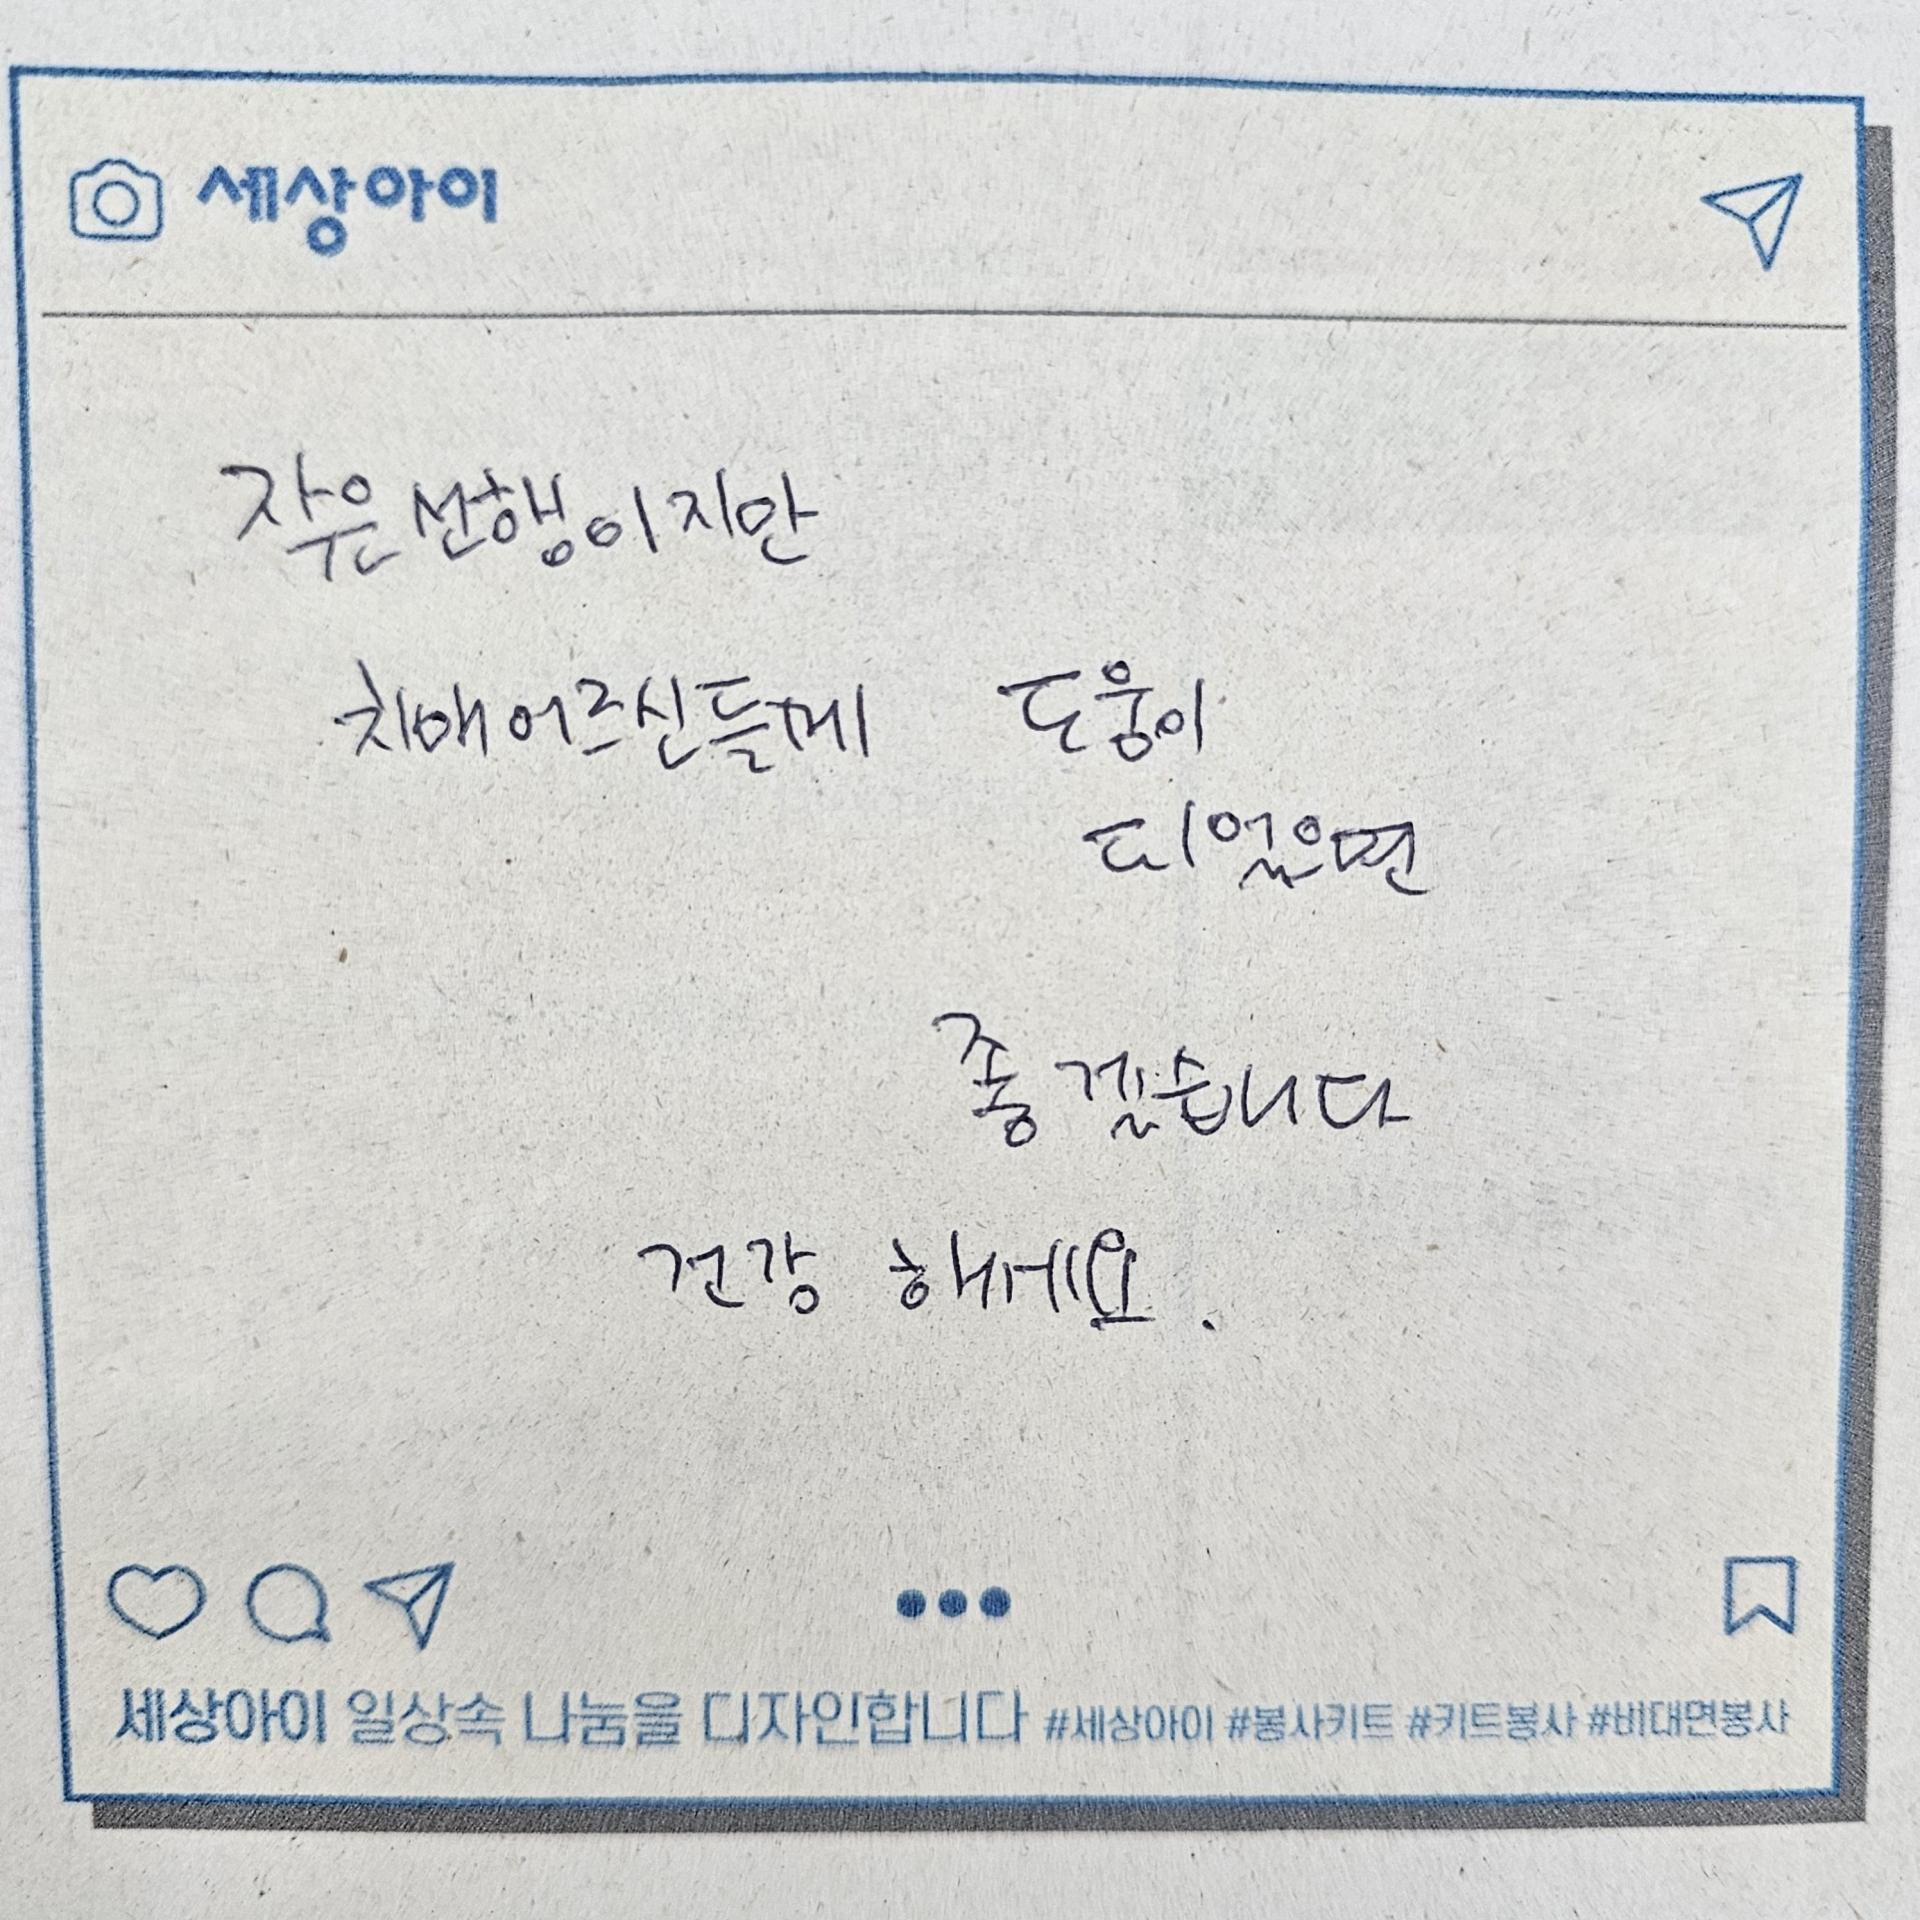 세상아이
작은 선행이지만
치매 어르신들께 도움이
되었으면
좋겠습니다
건강 해세요.
세상아이 일상속 나눔을 디자인합니다 #세상아이 #봉사키트 #키트봉사 #비대면봉사